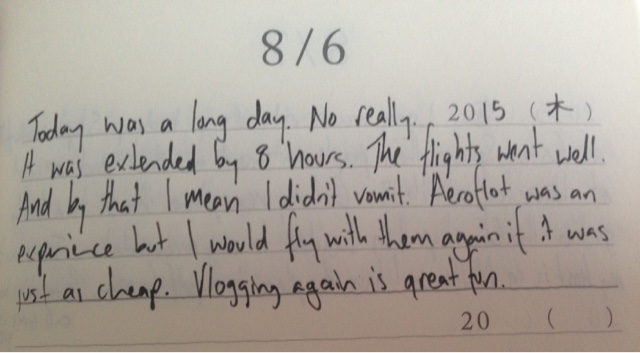 8/6
Today was a long day. No really. 2015 (木)
It was extended by 8 hours. The flights went well.
And by that I mean I didn't vomit. Aeroflot was an
exprience but I would fly with them again if it was
just as cheap. Vlogging again is great fun.
20 ( )